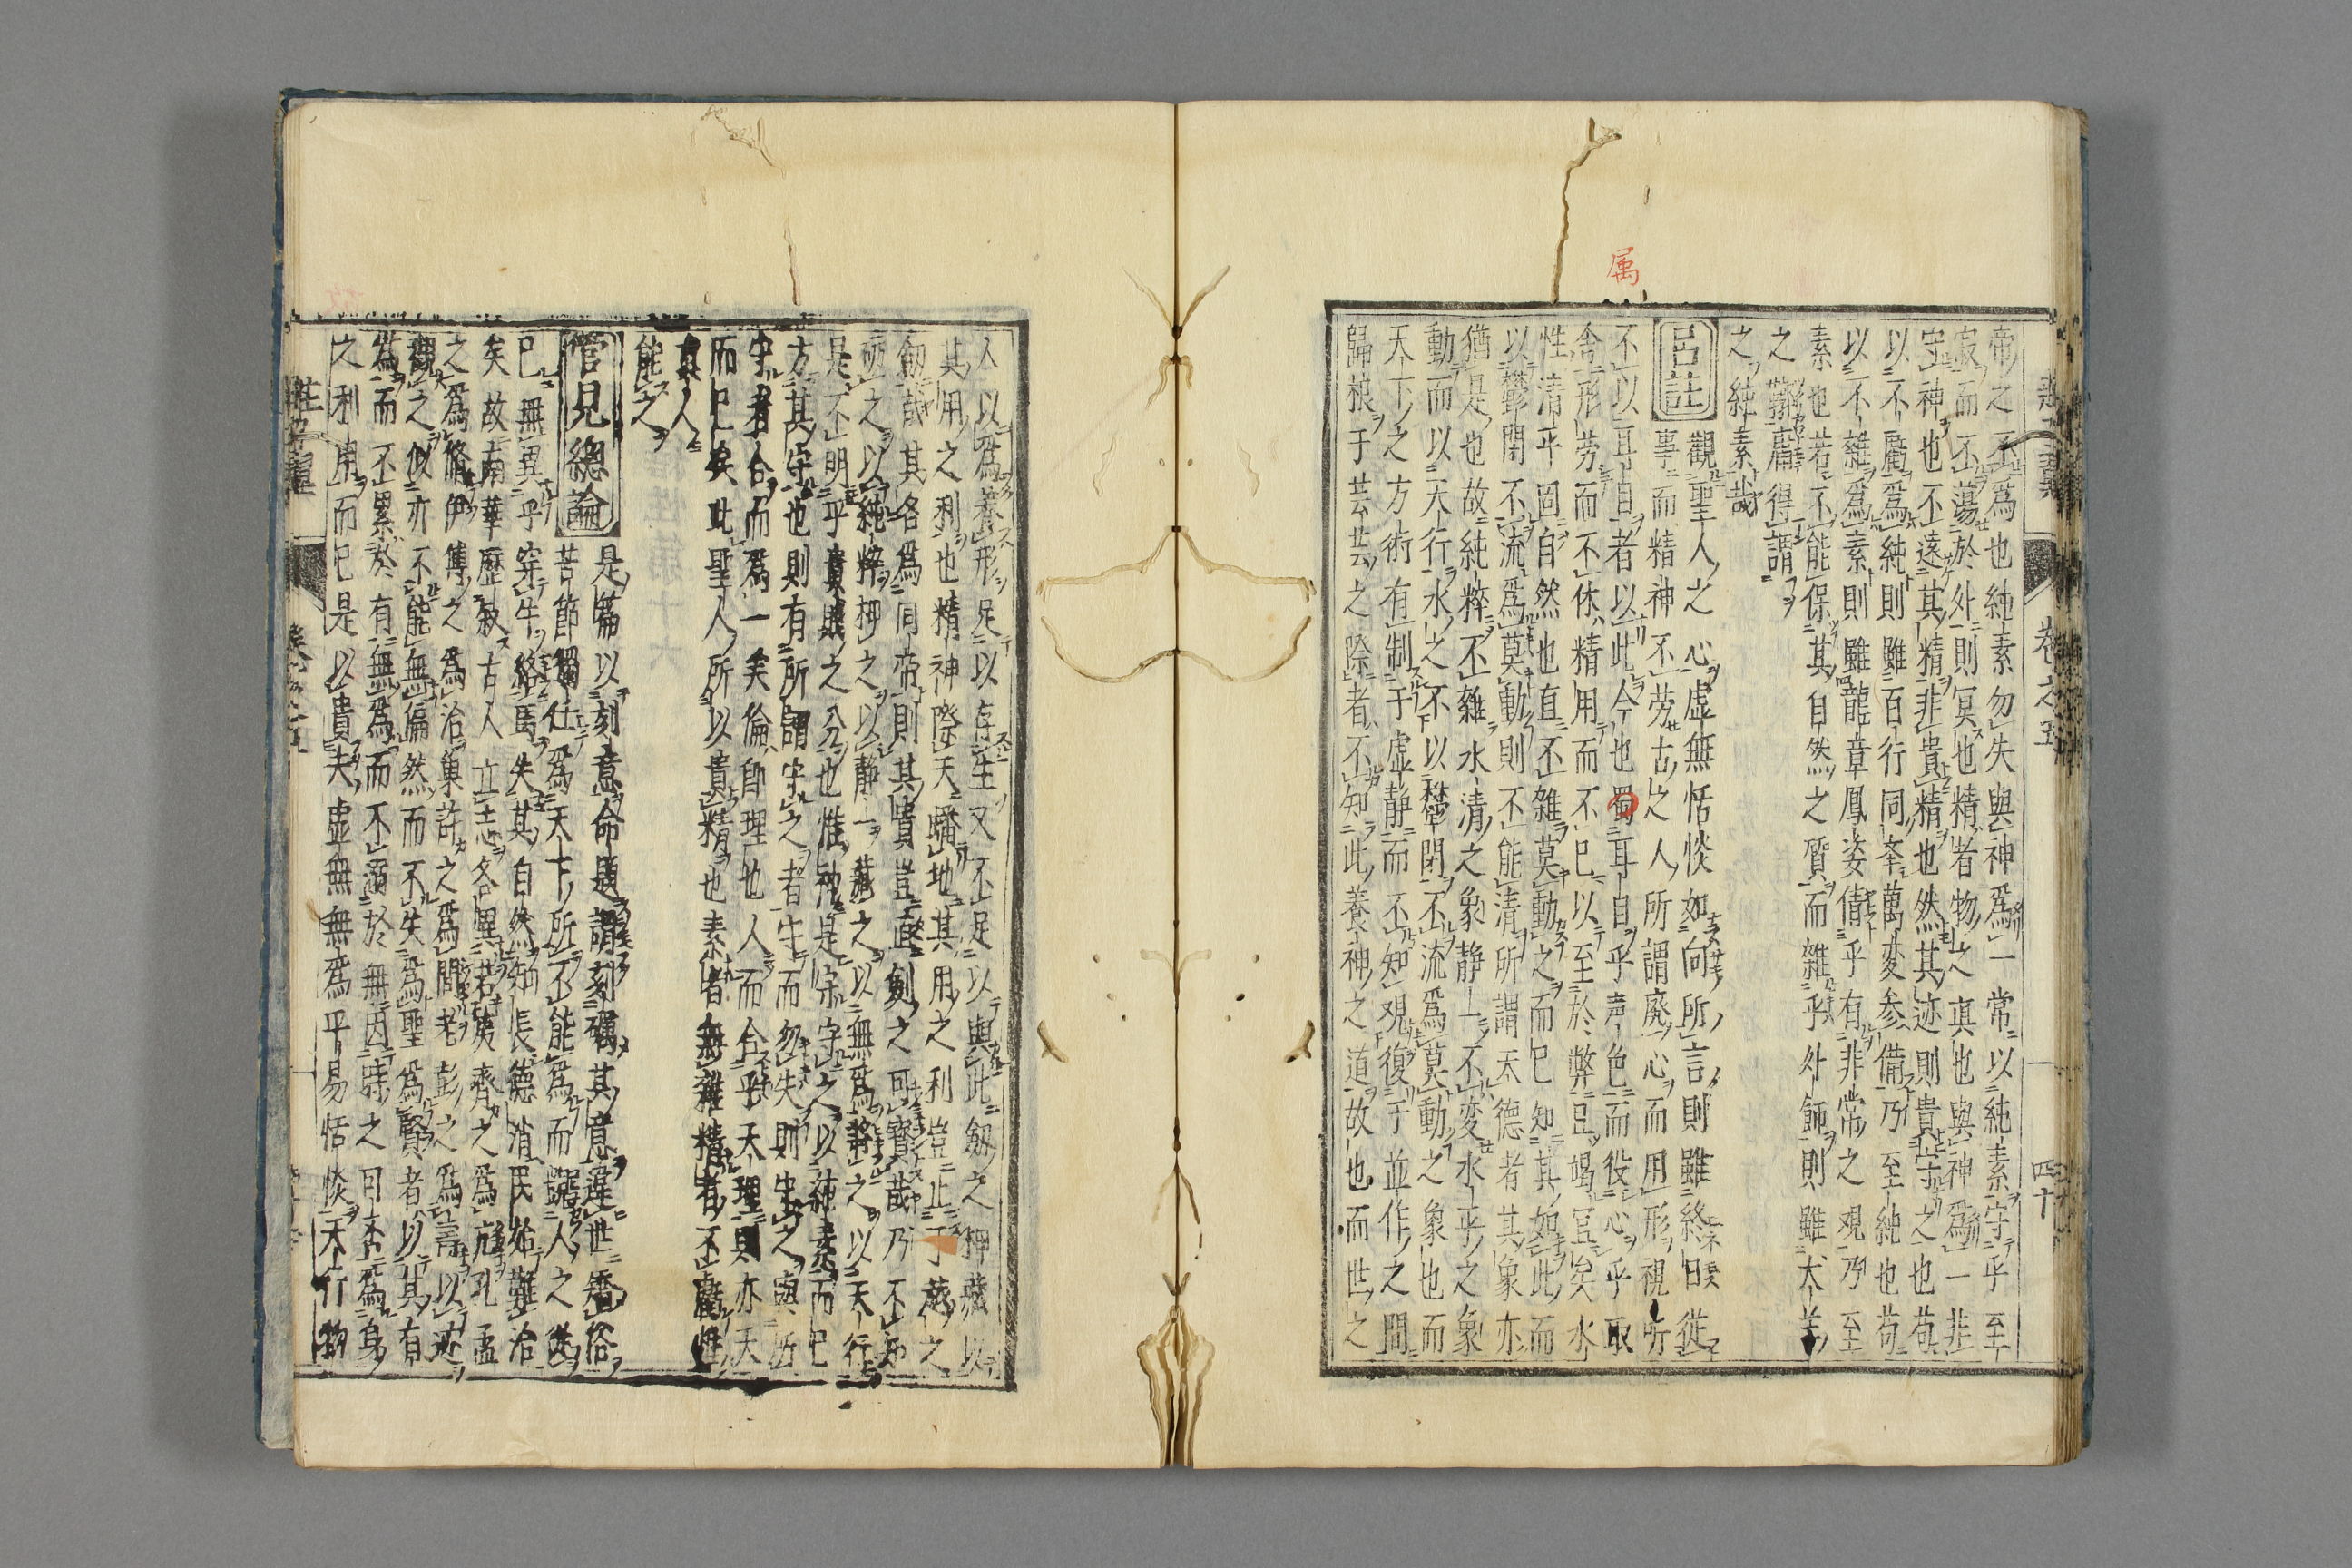 帝之不爲也純素勿失與神爲一常以純素守乎至
寂而不蕩於外則冥也精者物之真也與神爲一非
守神也不遠其精非貴精也然其迹則貴守之也苟
以不虧爲純則雖百行同奉萬変参備乃至純也苟
以不雜爲素則雖龍章鳳姿倩乎有非常之観乃至
素也若不能保其自然之質而雜乎外飾則雖犬羊
之鞹庸得謂
之純素哉
呂註
觀聖人之心虚無恬惔如向所言則雖終日従
事而精神不労古之人所謂廃心而用形視听
不以耳目者以此今也蜀耳目乎声色而役心乎取
舍形労而不休精用而不已以至於弊且竭冝矣水
性清平固自然也直不雑莫動之而已知其如此而
以欝閉不流爲莫動則不能清所謂天德者其象亦
猶是也故純粹不雜水清之象静一不変水乎之象
動而以天行水之不以欝閉不流爲莫動之象也而
天下之方術有制于虚静而不知観復于並作之間
歸根于芸芸之際者不知此養神之道故也而世之
属
新添荘子翼 卷之五 四十
人以爲養形足以存生又不足以與此劔之押藏以
其用之利也精神際天蟠地其用之利豈止于越之
劔哉其名爲同帝則其貴豈直刻之可寳哉乃不知
砥之以純粹押之以静一藏之以無爲將之以天行
是不明乎貴賤之分也惟神是守守之以純素而已
方其守也則有所謂守之者守而勿失則忘之與所
守者合而爲一矣倫即理也人而合乎天理則亦天
而已矣此聖人所以貴精也素者無雜精者不虧惟
真人
能之
管見總論
是篇以刻意命題謂刻礪其意違世矯俗
苦節獨仕爲天下所不能爲而踞人之従
已無異乎穿牛絡馬失其自然知長德消民始難治
矣故南華歴叙古人立志各異若夷齊之爲亢孔孟
之爲脩伊傅之爲治巢許之爲間老彭之爲壽以迹
觀之似亦不能無偏然而不失爲聖爲賢者以其有
為而不累於有無爲而不溺於無因時之可否爲身
之利用而已是以貴夫虚無無爲平易恬惔天行物